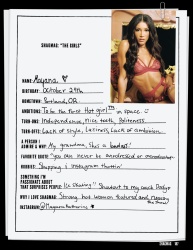 SHAGMAG: "THE GIRLS"
NAME: Mayana ♡
BIRTHDAY: October 29th
HOMETOWN: Portland, OR
AMBITIONS: To be the first Hot girl™ in space
TURN-ONS: Independence, nice teeth, Politeness.
TURN-OFFS: Lack of style, Laziness, Lack of ambition
A PERSON I ADMIRE & WHY: My grandma, She's a badass!
FAVORITE QUOTE: "You can never be overdressed or overeducated"
HOBBIES: Shopping & instagram thottin'
SOMETHING I'M PASSIONATE ABOUT THAT SURPRISES PEOPLE: Ice Skating
WHY I LOVE SHAGMAG: Strong, hot women featured and
INSTAGRAM: